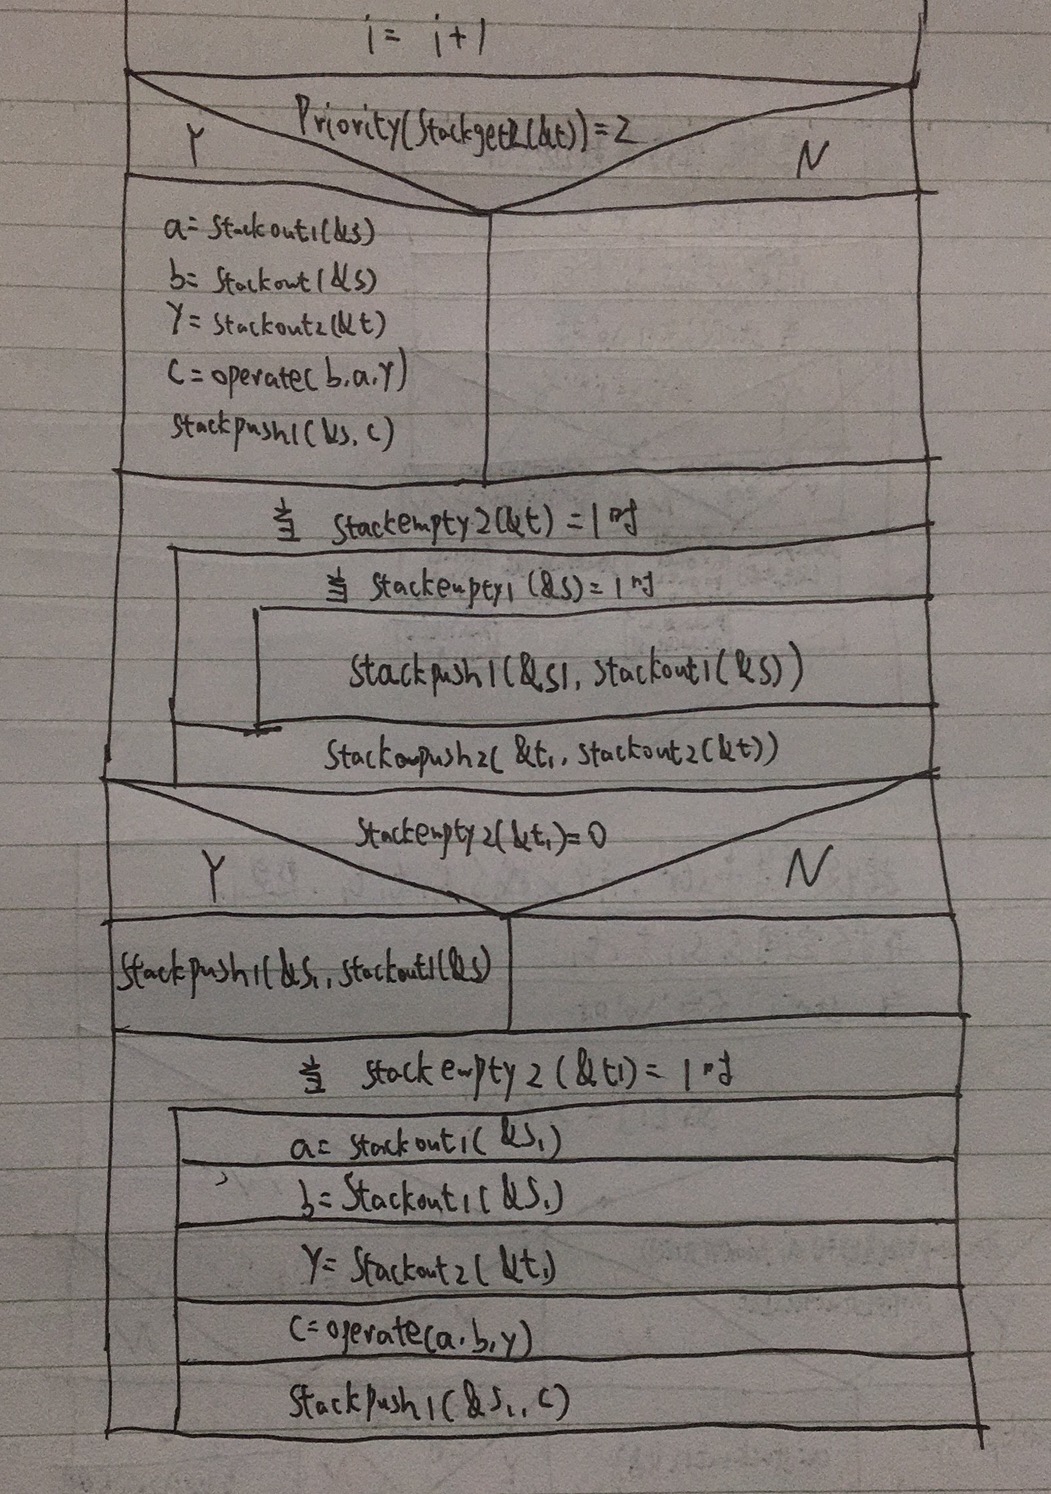 i= i+1
Priority(Stackget2(&t))=2
Y
N
a= Stackout1(&s)
b= Stackout1(&s)
Y= Stackout2(&t)
C=operate(b,a,Y)
Stackpush1(&s,c)
当 Stackempty2(&t)=1时
当 Stackempty1(&s)=1时
Stackpush1(&s1,Stackout1(&s))
push2(&t1,Stackout2(&t))
Stackempty2(&t1)=0
Y
N
Stackpush1(&s1,Stackout1(&s)
当 Stackempty2(&t1)=1时
a= Stackout1(&s1)
b=Stackout1(&s1)
Y= Stackout2(&t1)
C=operate(a,b,y)
Stackpush1(&s1,c)